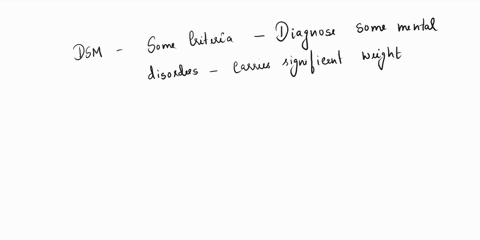 DSM - Some Criteria - Diagnose some mental
disorders - carries significent weight